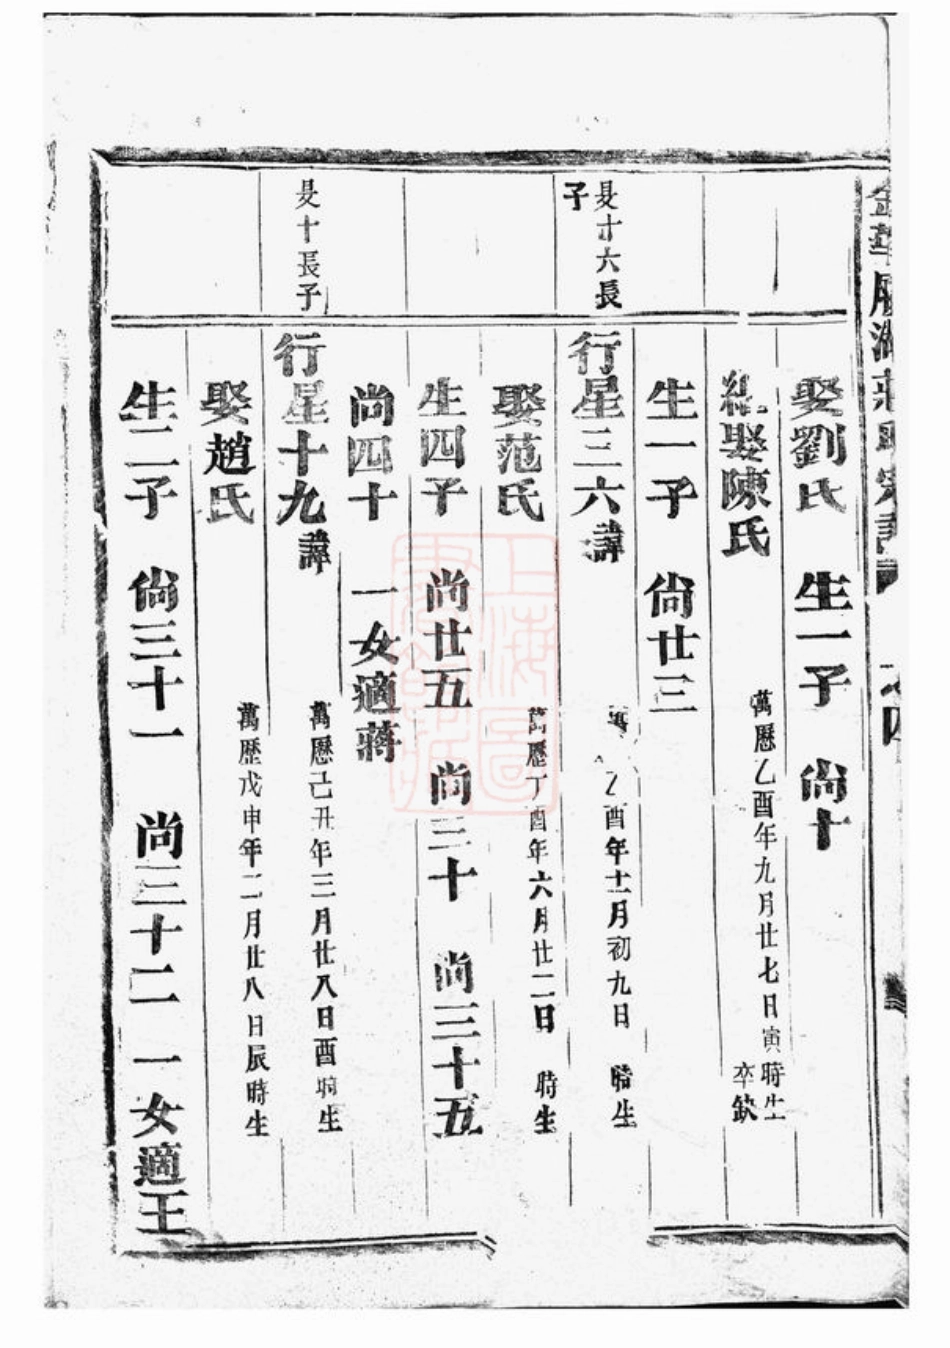 娶劉氏 生一子 尚十
娶陳氏 萬曆乙酉年九月廿七日寅時生
卒缺
生一子 尚廿三
㫷廿六長
子
行星三六諱 乙酉年十一月初九日 時生
娶范氏 萬歷丁酉年六月廿二日 時生
生四子 尚廿五 尚三十 尚三十五
尚四十 一女適蔣
㫷十長子
行星十九諱 萬曆己丑年三月廿八日酉時生
娶趙氏 萬歷戊申年二月廿八日辰時生
生二子 尚三十一 尚三十二 一女適王
上海圖書館藏